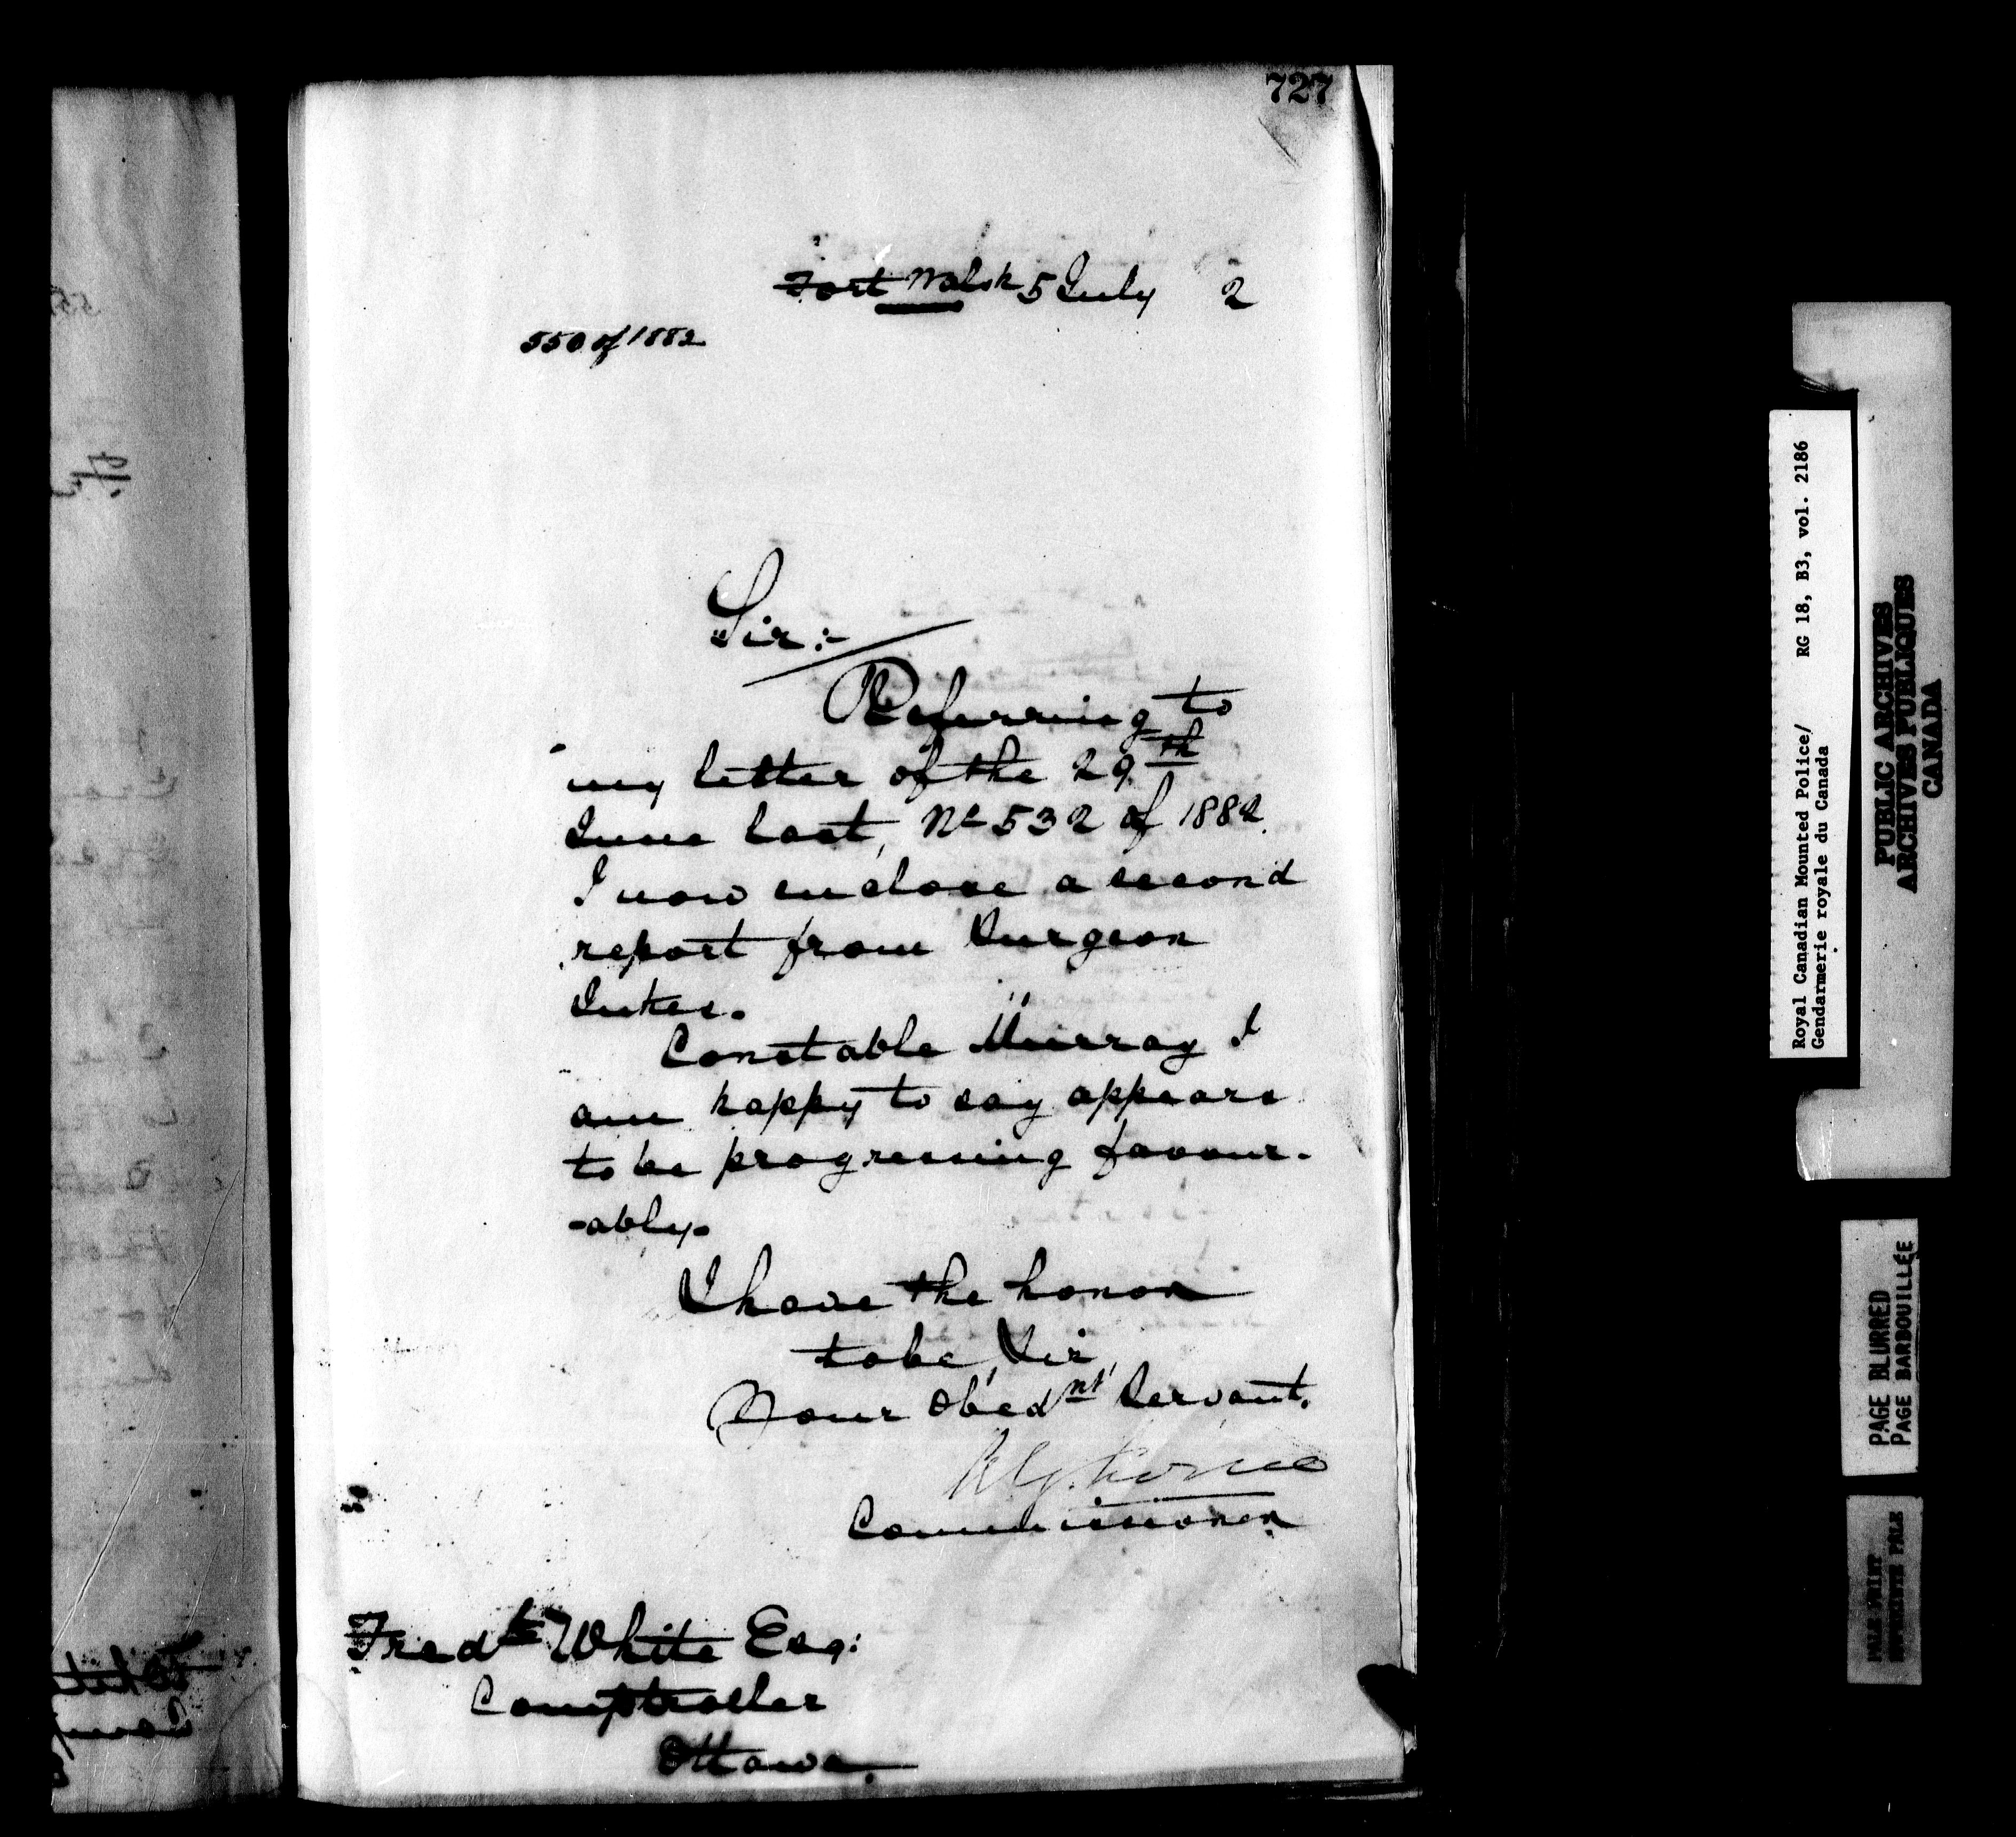 727
Fort Walsh 5 July 2
550 of 1882
Sir:-
Referring to
my letter of the 29th
June last, No 532 of 1882.
I now enclose a second
report from Surgeon
Jukes.
Constable Murray I
am happy to say appears
to be progressing favour-
-ably.
I have the honor
to be, Sir,
Your Obednt Servant.
Commissioner
Fredk White Esq:
Comptroller
Ottawa.
Royal Canadian Mounted Police/ RG 18, B3, vol. 2186
Gendarmerie royale du Canada
PUBLIC ARCHIVES
ARCHIVES PUBLIQUES
CANADA
PAGE BLURRED
PAGE BARBOUILLÉE